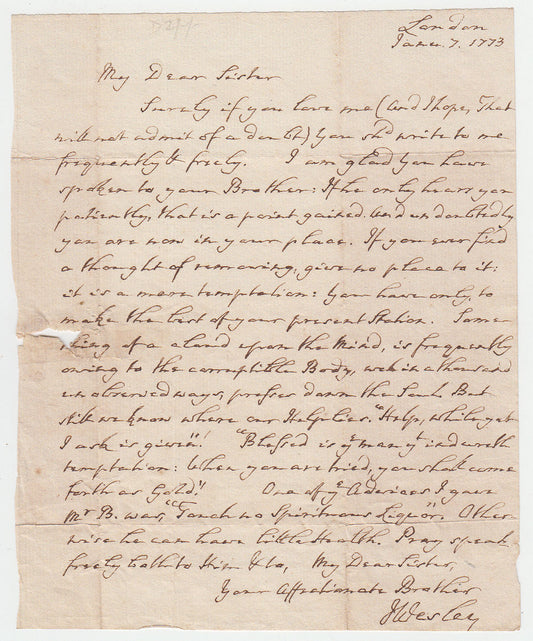 London
Janu. 7. 1773
My Dear Sister
Surely if you love me (And I hope, That
will not admit of a doubt) You shd. write to me
frequently & freely. I am glad You have
spoken to your Brother: If he only hears you
patiently, that is a point gained. And undoubtedly
you are now in your place. If you ever find
a thought of removing, give no place to it:
it is a mere temptation: You have only, to
make the best of your present Station. Some-
thing of a cloud upon the Mind, is frequently
owing to the corruptible Body, wch in a thousand
unobserved ways, presses down the Soul. But
still we know where our Help lies. "Help, while yet
I ask is given"! "Blessed is ye man yt indureth
temptation: When you are tried, you shall come
forth as Gold"! One of ye Advices I gave
Mr B. was, "Touch no Spirituous Liquor". Other-
wise he can have little Health. Pray speak
freely both to Him & to, My Dear Sister,
Your Affectionate Brother
JWesley